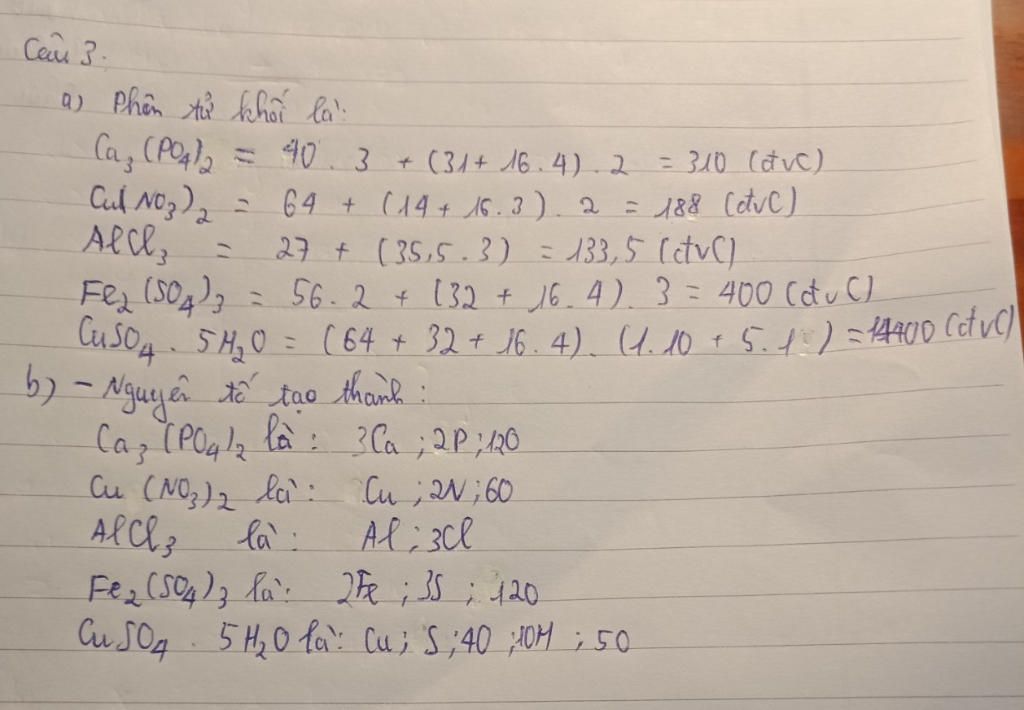 Câu 3.
a) Phân tử khối là:
Ca₃(PO₄)₂ = 40 . 3 + (31 + 16.4) . 2 = 310 (đvC)
Cu(NO₃)₂ = 64 + (14 + 16.3) . 2 = 188 (đvC)
AlCl₃ = 27 + (35,5.3) = 133,5 (đvC)
Fe₂(SO₄)₃ = 56.2 + (32 + 16.4) . 3 = 400 (đvC)
CuSO₄ . 5H₂O = (64 + 32 + 16.4) . (1.10 + 5. ) = 14400 (đvC)
b) - Nguyên tố tạo thành:
Ca₃(PO₄)₂ là: 3Ca ; 2P ; 12O
Cu(NO₃)₂ là: Cu ; 2N ; 6O
AlCl₃ là: Al ; 3Cl
Fe₂(SO₄)₃ là: 2Fe ; 3S ; 12O
CuSO₄ . 5H₂O là: Cu ; S ; 4O ; 10H ; 5O